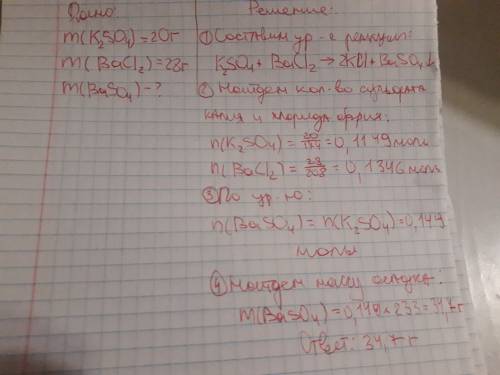 Дано:
m(K₂SO₄)=20г
m(BaCl₂)=28г
m(BaSO₄)-?
Решение:
① Составим ур-е реакции:
K₂SO₄+BaCl₂→2KCl+BaSO₄↓
② Найдем кол-во сульфата
калия и хлорида бария:
n(K₂SO₄)=20/174=0,1149моль
n(BaCl₂)=28/208=0,1346моль
③ По ур-ю:
n(BaSO₄)=n(K₂SO₄)=0,149
моль
④ Найдем массу осадка:
m(BaSO₄)=0,149×233=34,7г
Ответ: 34,7г